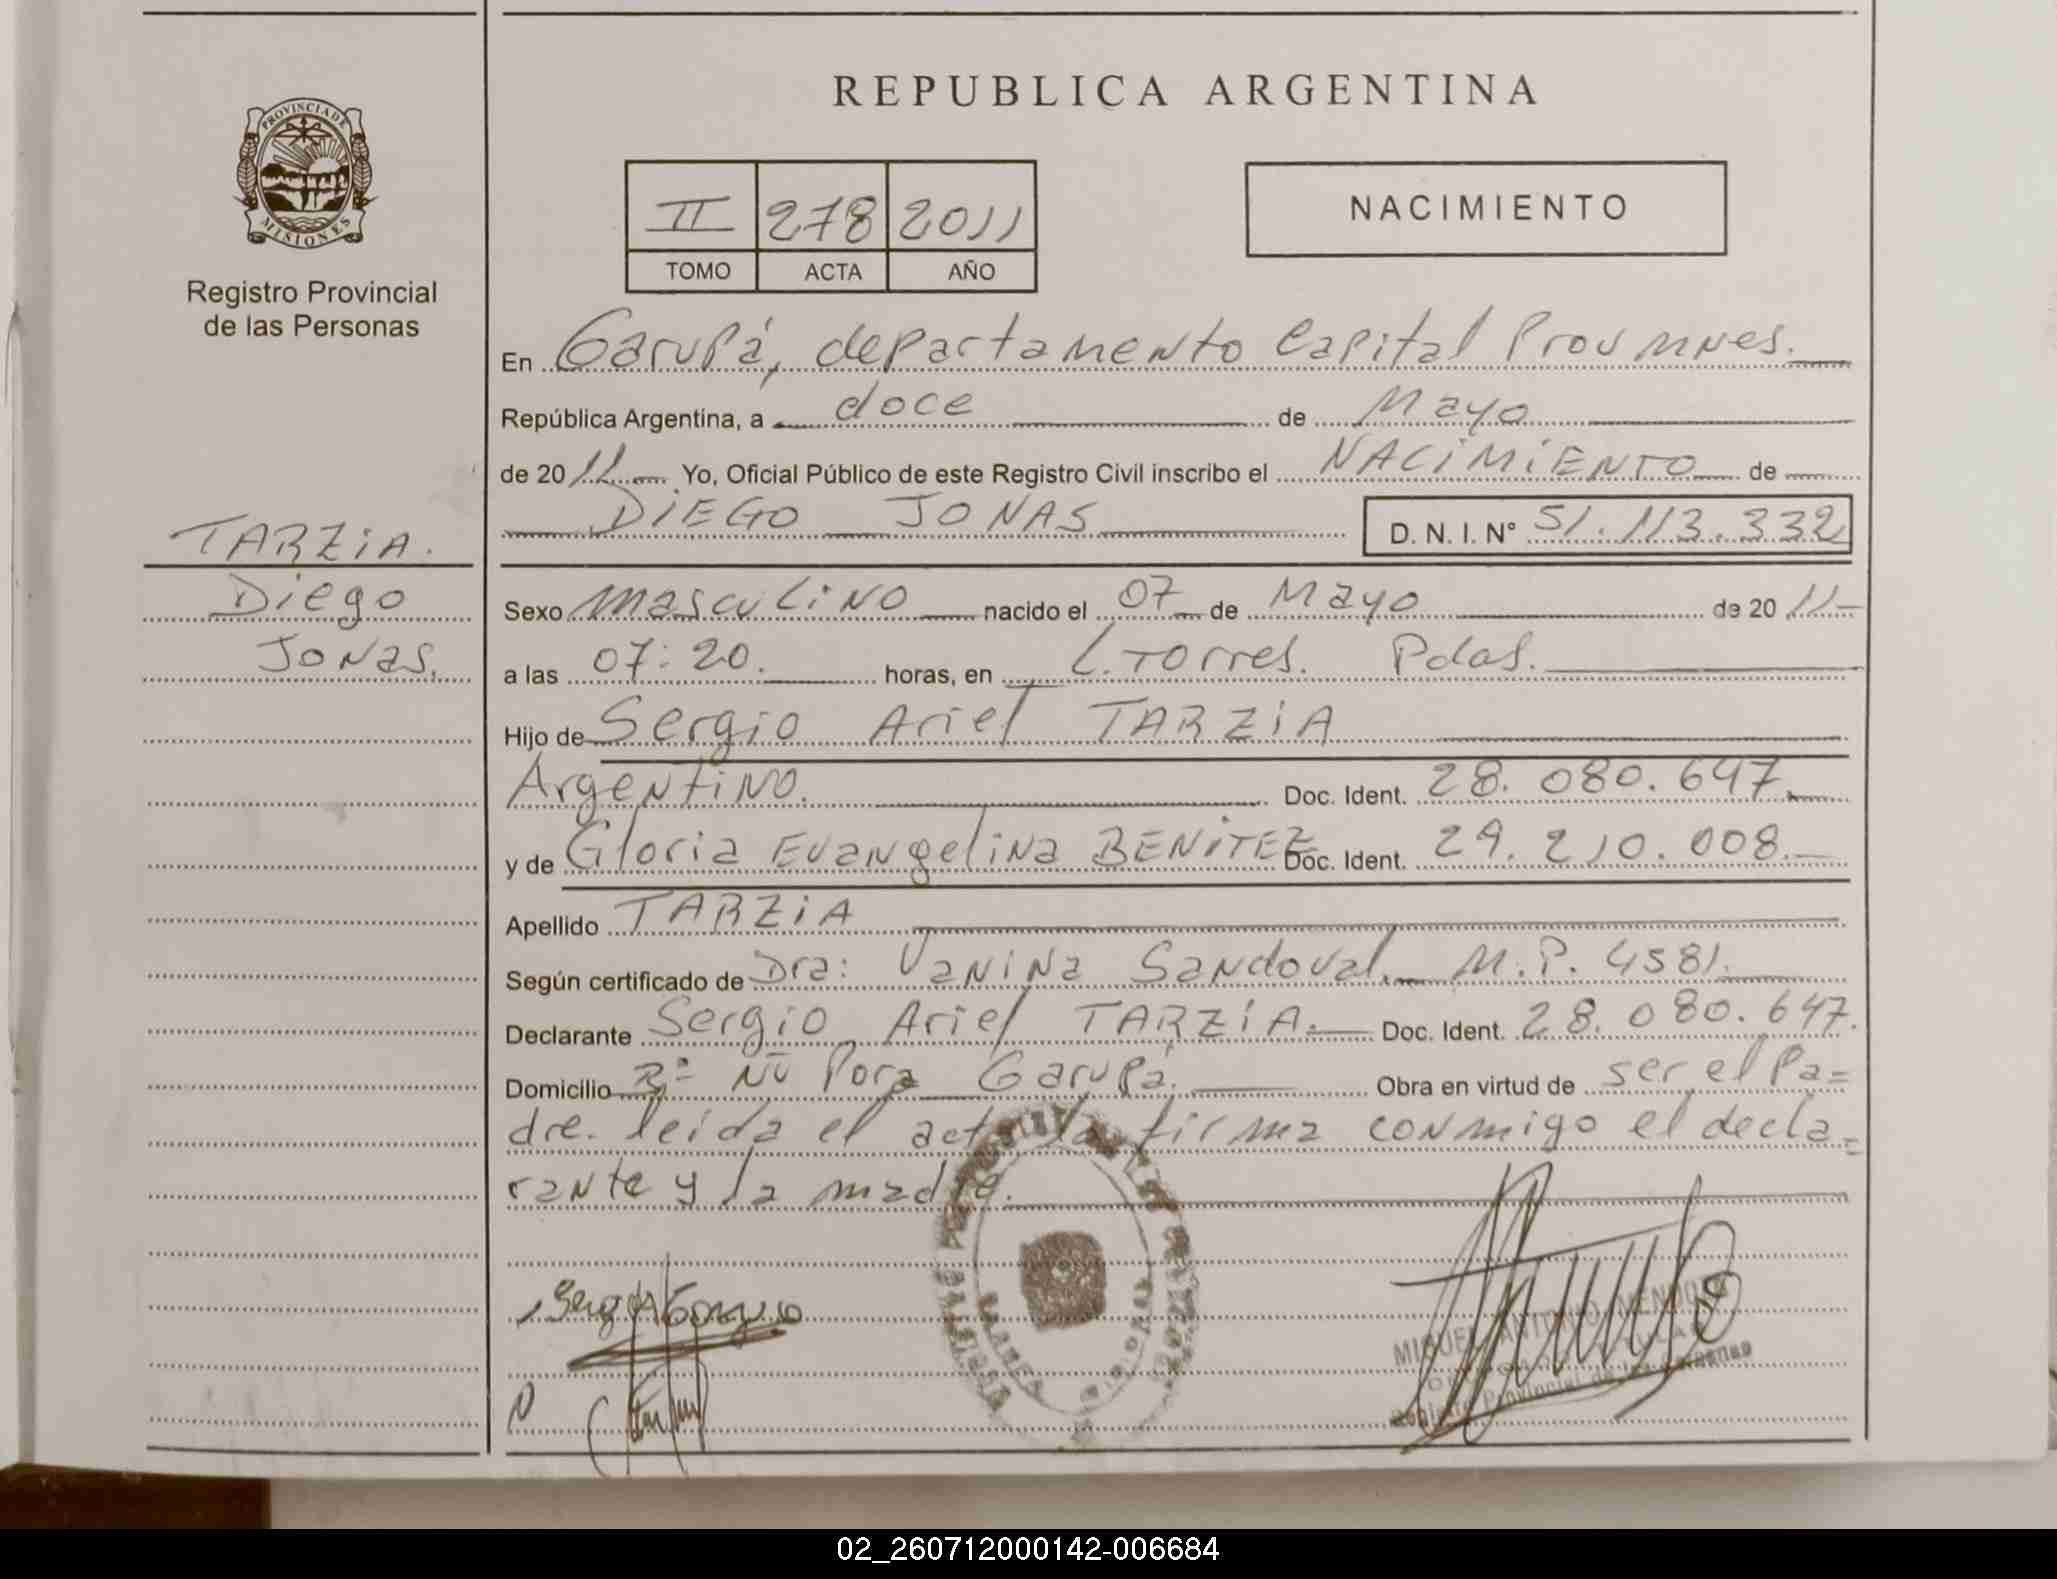 REPUBLICA ARGENTINA
PROVINCIA DE
MISIONES
Registro Provincial
de las Personas
II 278 2011
TOMO ACTA AÑO
NACIMIENTO
En Garupá, departamento Capital Prov mnes.
República Argentina, a doce de Mayo
de 2011 Yo, Oficial Público de este Registro Civil inscribo el NACIMIENTO de
DIEGO JONAS D. N. I. N° 51.113.332
TARZIA.
Diego
Jonas.
Sexo masculino nacido el 07 de Mayo de 2011
a las 07:20. horas, en L. Torres. Pdas.
Hijo de Sergio Ariel TARZIA
Argentino. Doc. Ident. 28.080.647
y de Gloria Evangelina BENITEZ Doc. Ident. 29.210.008.
Apellido TARZIA
Según certificado de Dra: Vanina Sandoval. M.P. 4581.
Declarante Sergio Ariel TARZIA. Doc. Ident. 28.080.647.
Domicilio Bº Ñu Pora Garupá. Obra en virtud de ser el Pa=
dre. leida el acta la firma conmigo el decla=
rante y la madre.
MIGUEL ANTONIO MENDOZA
Registro Provincial de las Personas
02_260712000142-006684